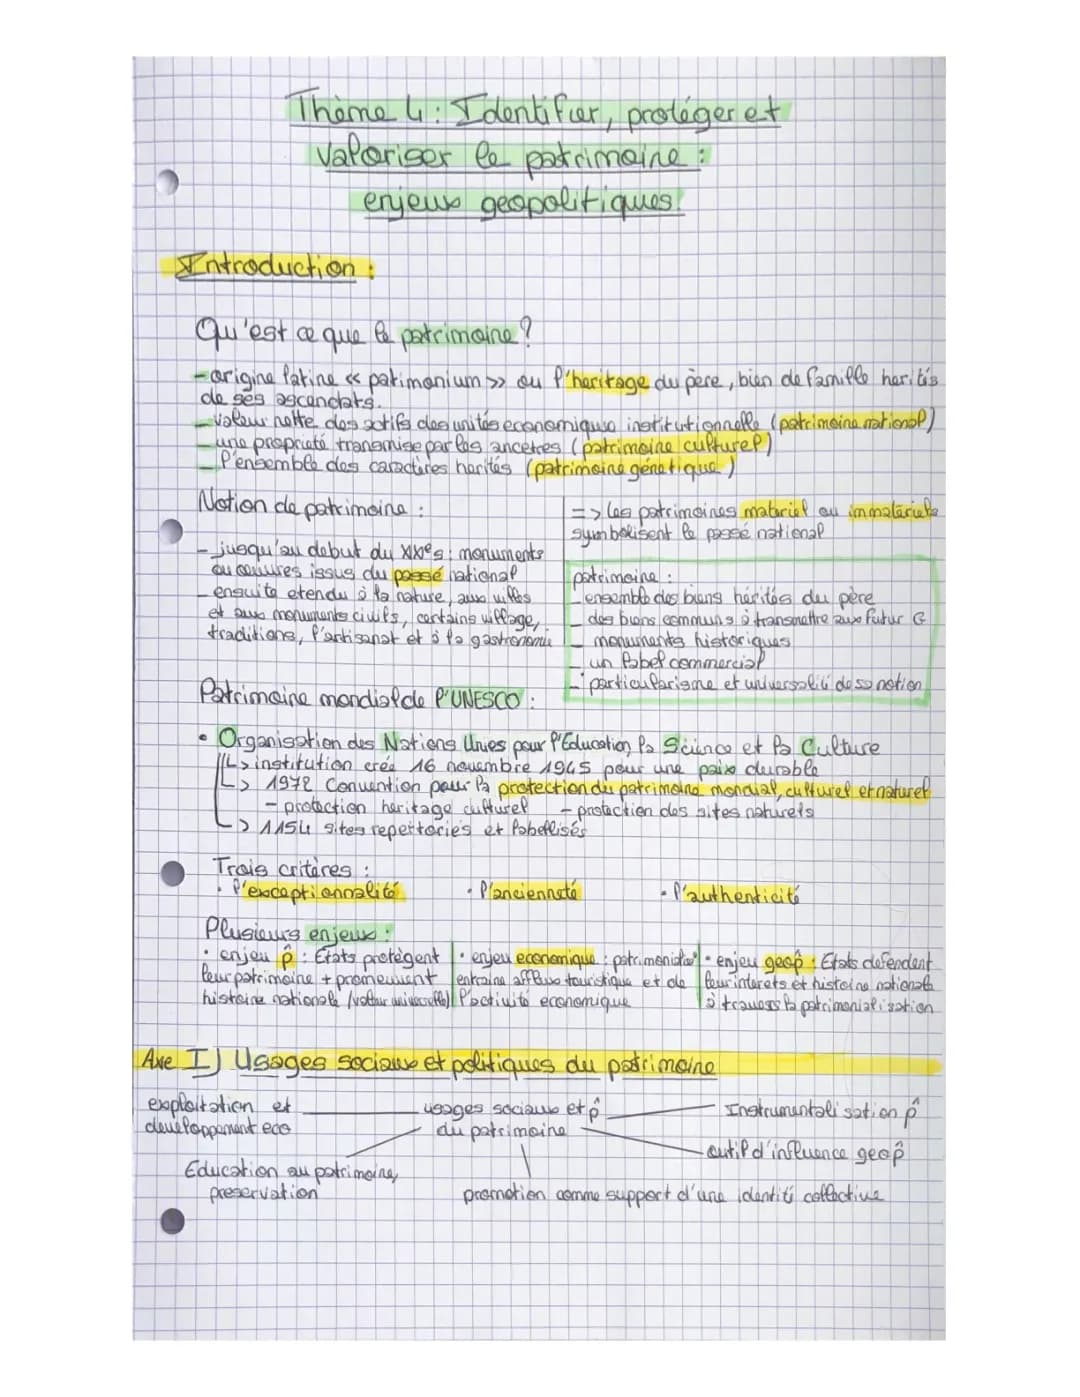 Thème 4 : Identifier, protéger et
valoriser le patrimoine :
enjeux geopolitiques
Introduction :
Qu'est ce que le patrimoine ?
- origine latine « patimonium » ou l'heritage du père, bien de famille herités
de ses ascendats.
- valeur nette des actifs des unités economique institutionnelle (patrimoine national)
- une propriété transmise par les ancetres (patrimoine culturel)
- l'ensemble des caractères herités (patrimoine génétique)
Notion de patrimoine :
- jusqu'au debut du XIXe s : monuments
ou oeuvres issus du passé national
- ensuite etendu à la nature, aux villes
et aux monuments civils, certains village,
traditions, l'artisanat et à la gastronomie
=> les patrimoines materiel ou immateriels
symbolisent le passé national
patrimoine :
- ensemble des biens hérités du père
- des biens communs à transmettre aux futur G
- monuments historiques
- un label commercial
- particularisme et universalité de sa notion
Patrimoine mondial de l'UNESCO :
• Organisation des Nations Unies pour l'Education, la Science et la Culture
↳ institution créé 16 novembre 1945 pour une paix durable
↳ 1972 Convention pour la protection du patrimoine mondial, culturel et naturel
- protection heritage culturel - protection des sites naturels
↳ 1154 sites repertoriés et labellisés
Trois critères :
• l'exceptionnalité • l'ancienneté • l'authenticité
Plusieurs enjeux :
• enjeu p̂ : Etats protègent
leur patrimoine + promeuvent
histoire nationale (valeur universelle)
• enjeu economique : patrimonialo°
entraine afflux touristique et de
l'activité economique
• enjeu geop̂ : Etats defendent
leur interets et histoire nationale
à travers la patrimonialisation
Axe I) Usages sociaux et politiques du patrimoine
exploitation et
developpement eco
usages sociaux et p̂
du patrimoine
Instrumentalisation p̂
outil d'influence geop̂
Education au patrimoine,
preservation
promotion comme support d'une identité collective